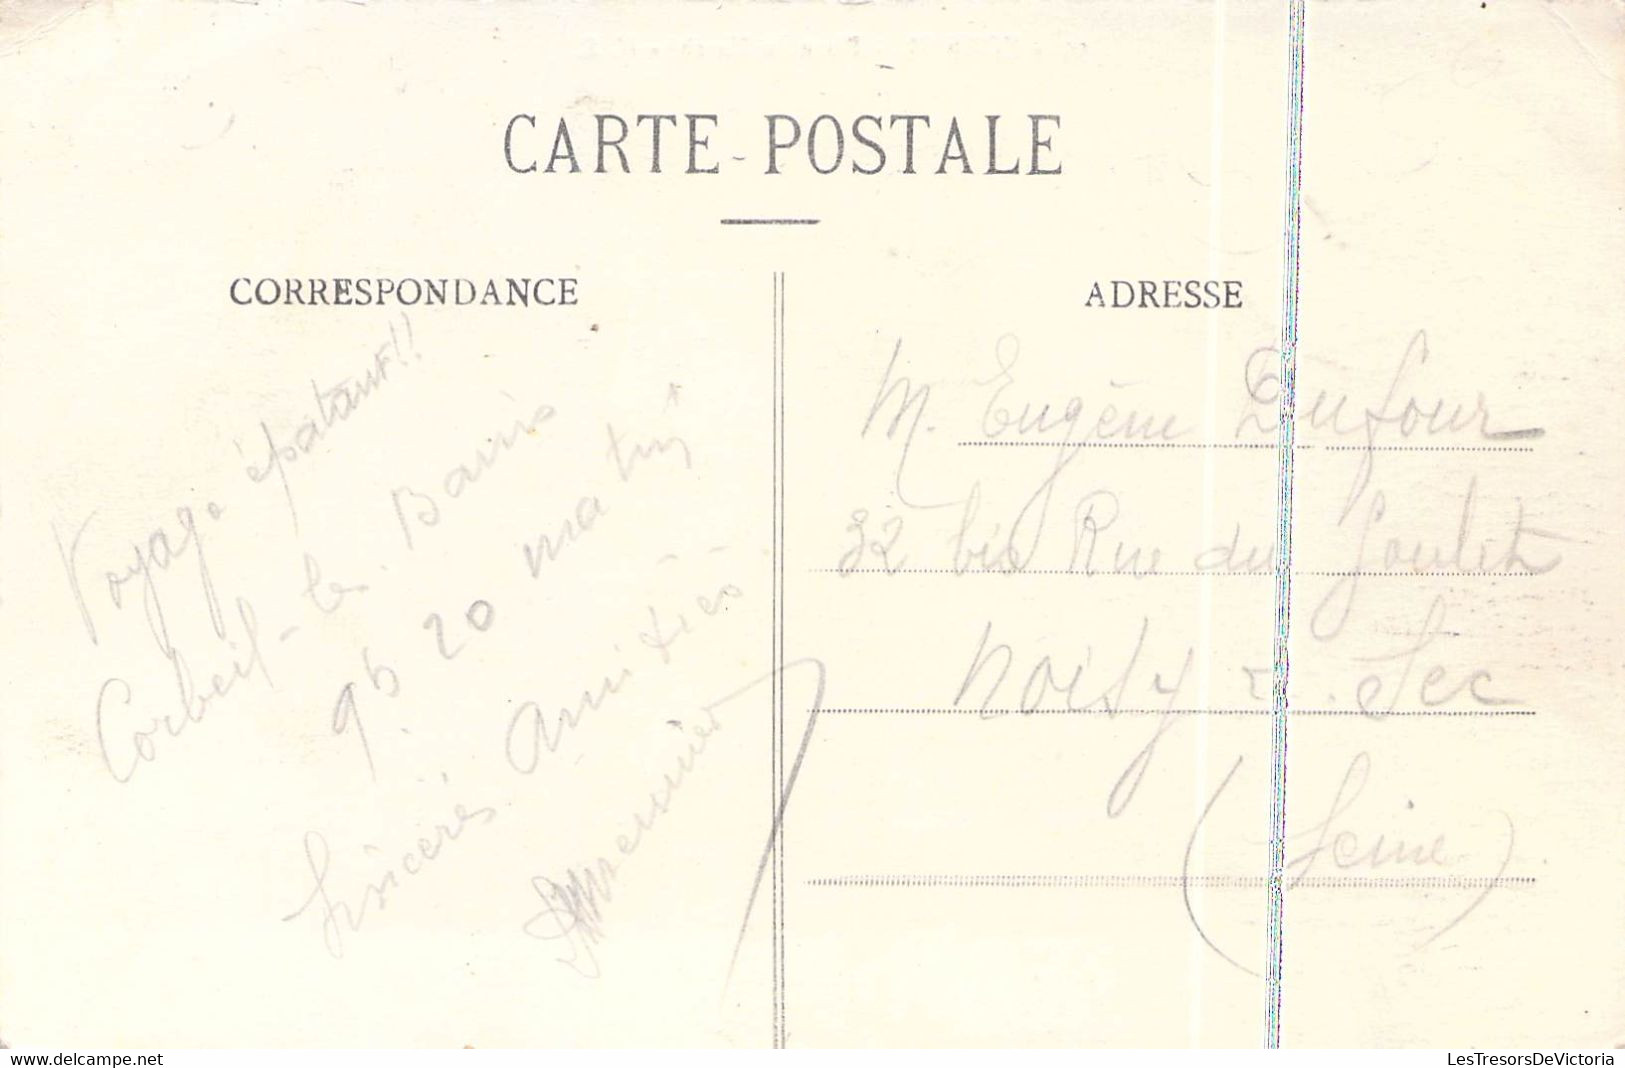 CARTE - POSTALE
CORRESPONDANCE
Voyage épatant!!
Corbeil - les. Barris
9h. 20 matin
Sincères Amitiés
ADRESSE
M. Eugène Dufour
32 bis Rue du Goulet
Noisy L. Sec
(Seine)
delcampe.net
LesTresorsDeVictoria